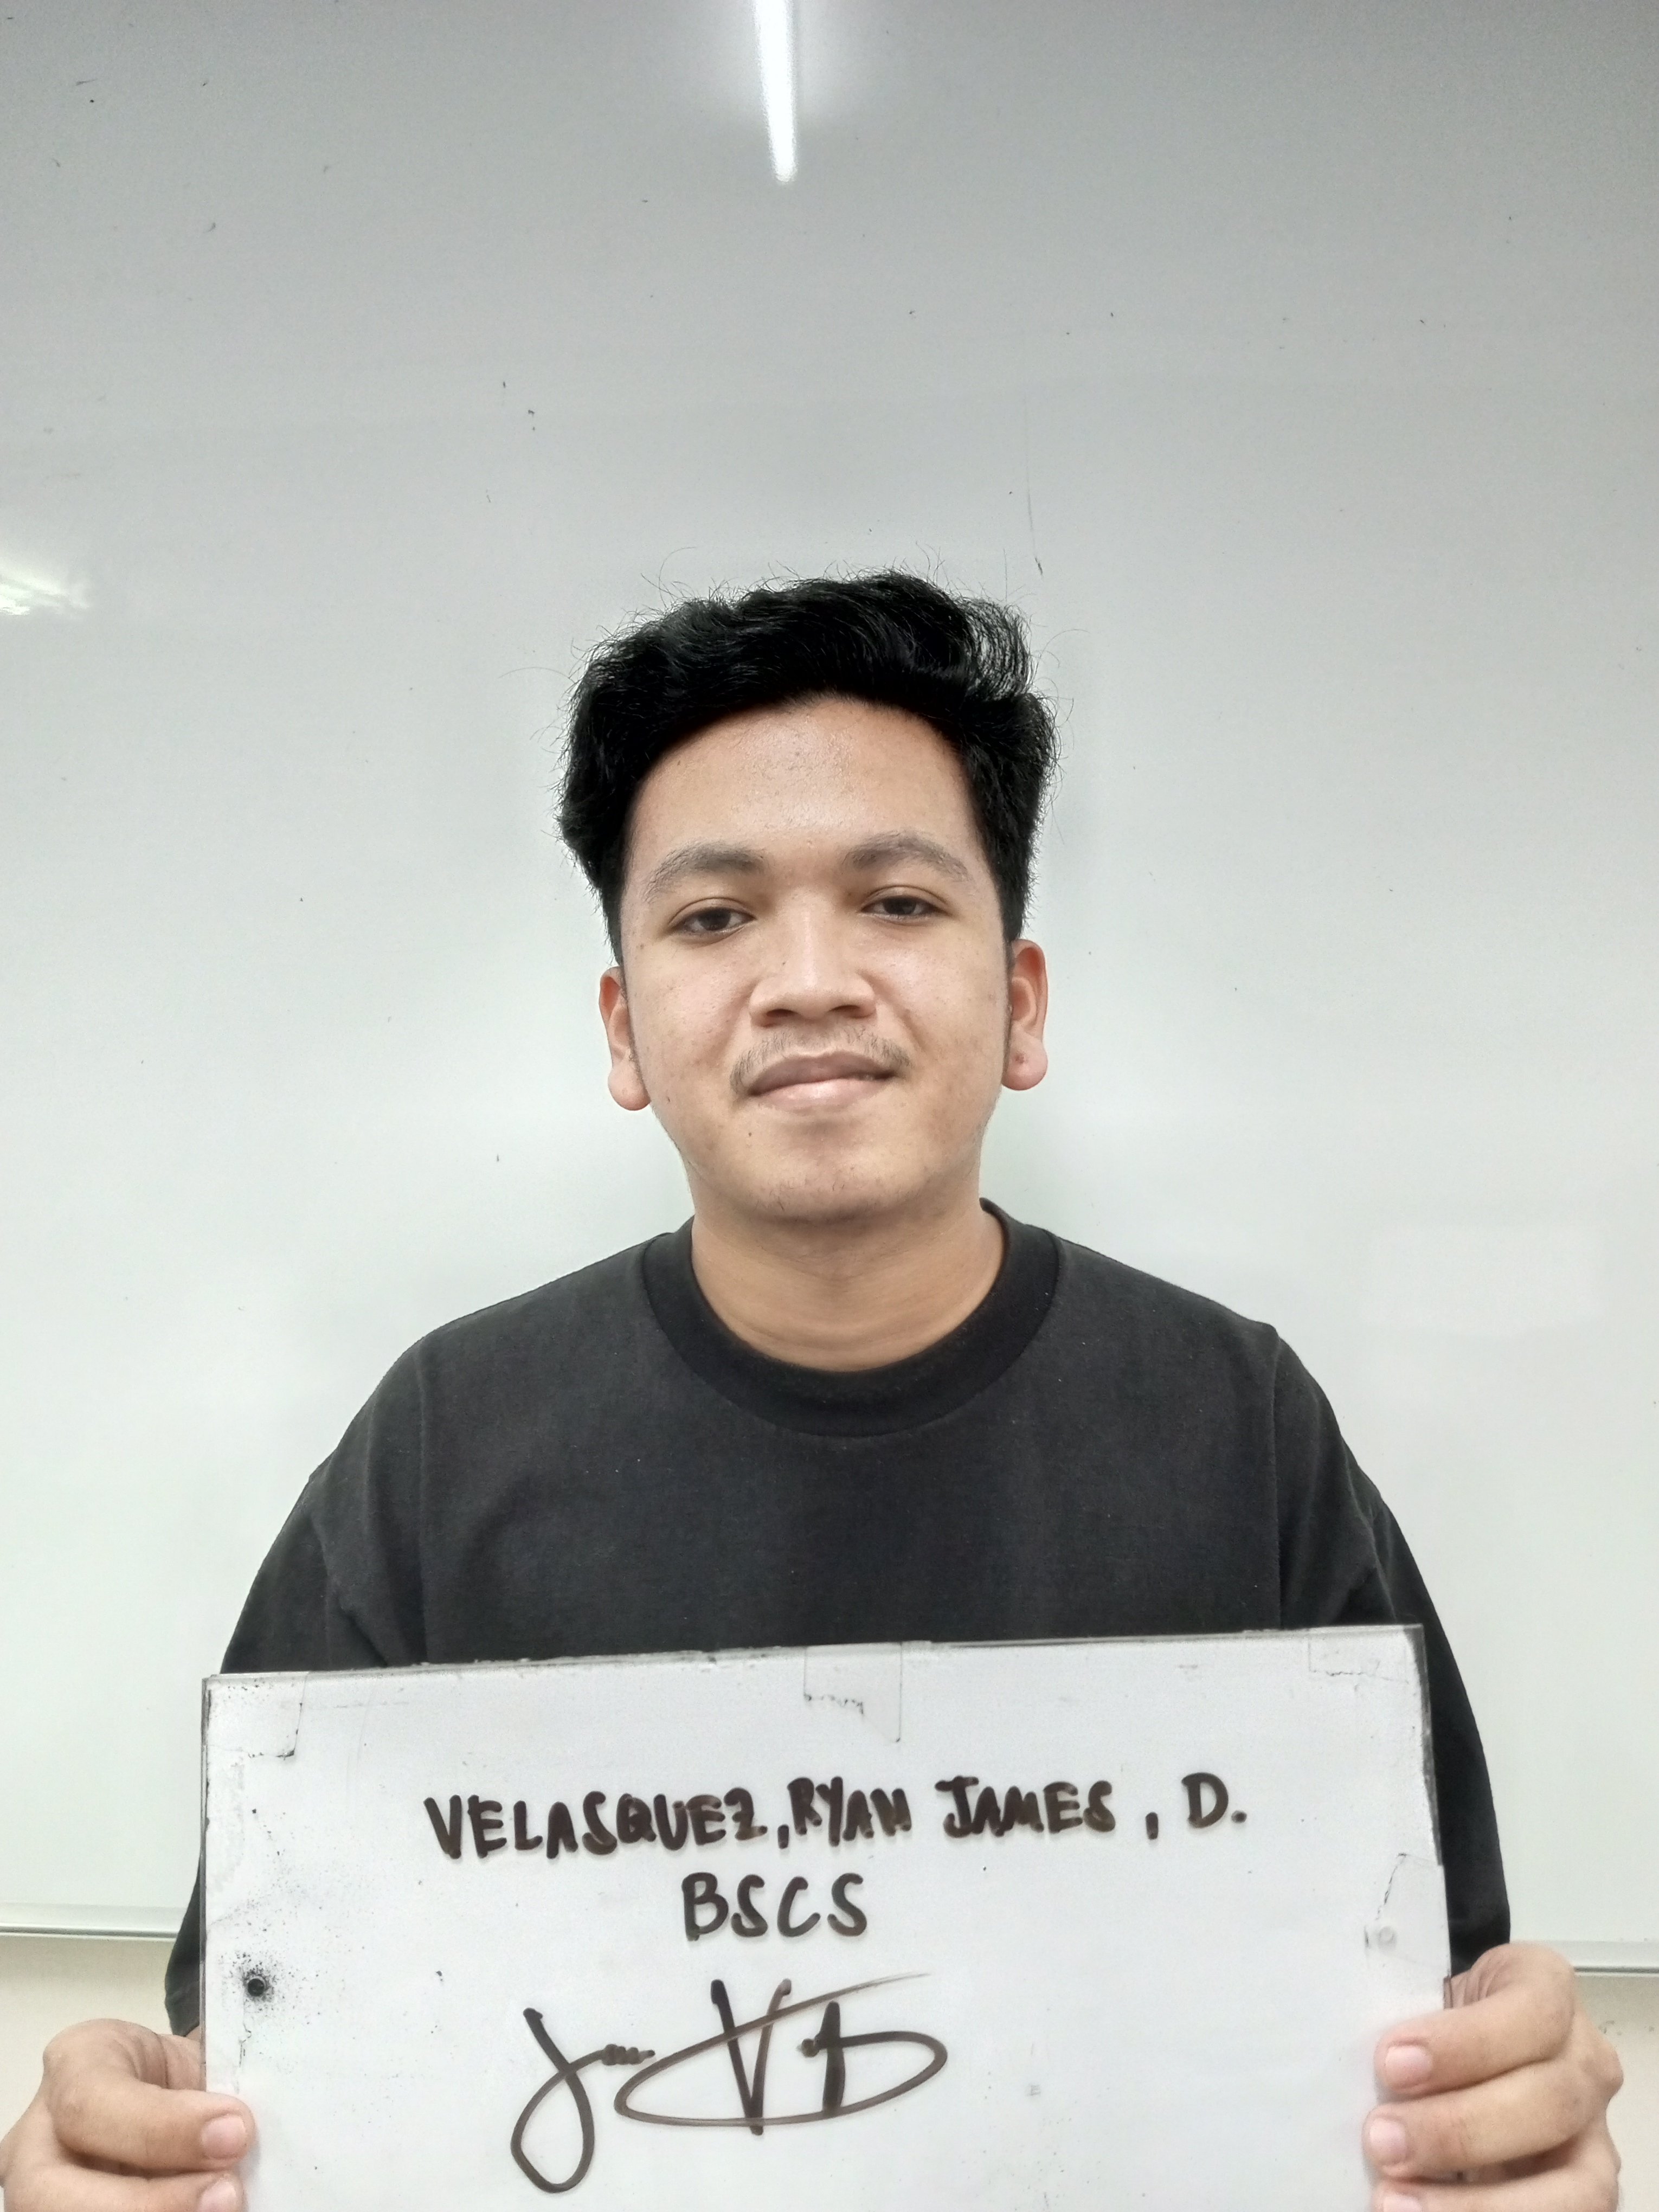 VELASQUEZ, RYAN JAMES, D.
BSCS